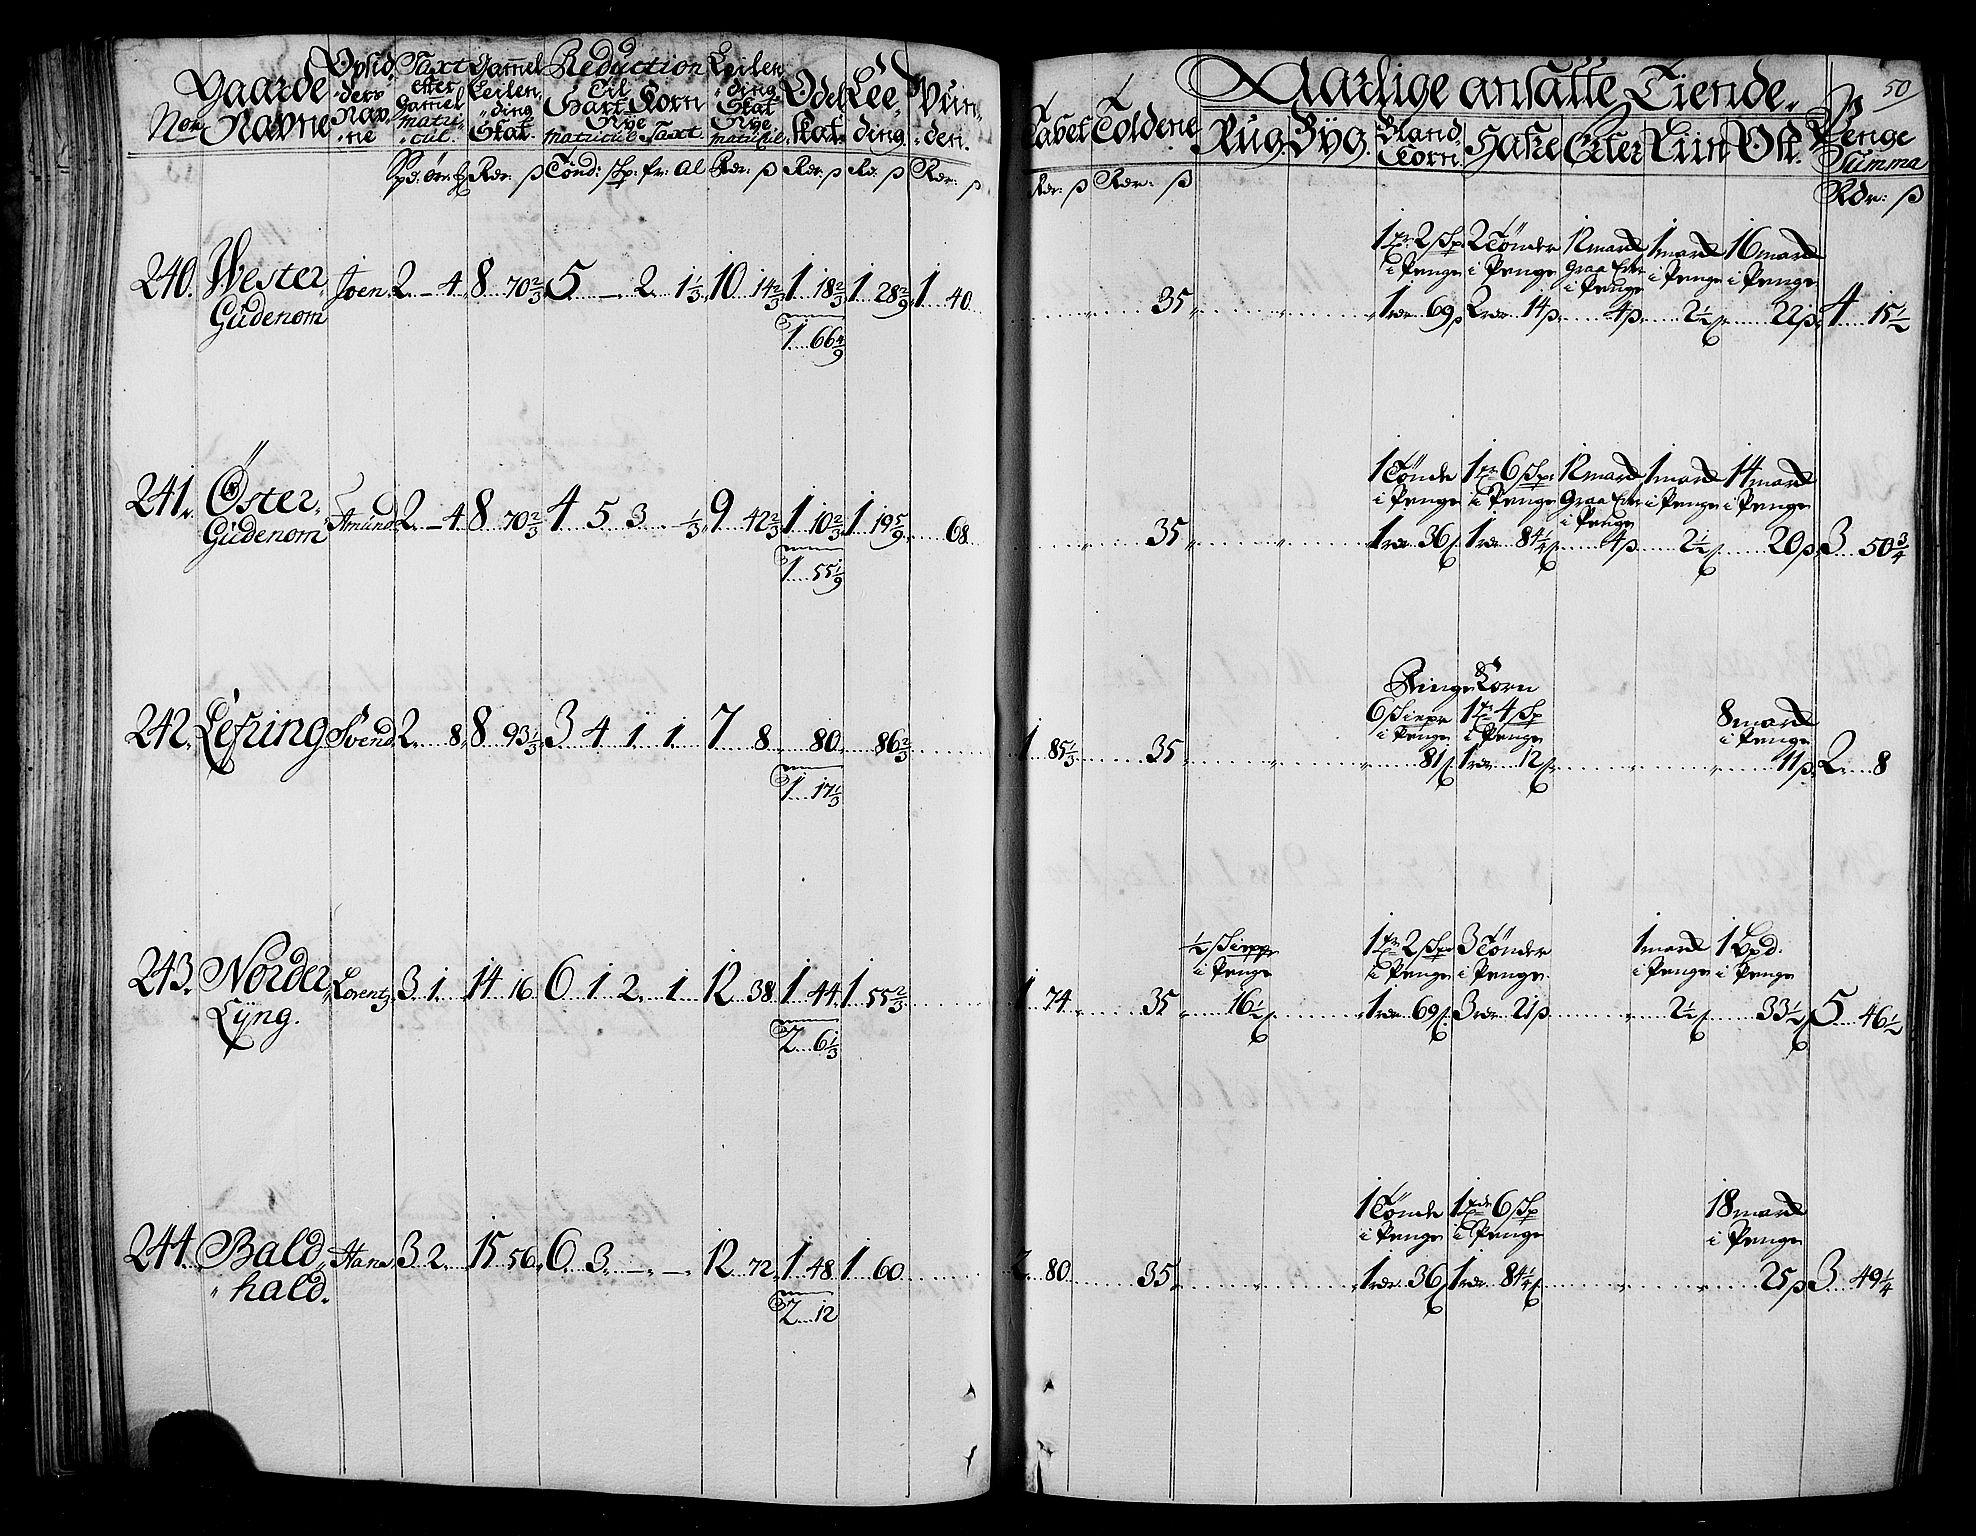 50
Aarlige ansatte Tiende.
Nor. Gaarde Navne
Opsid, ders Nav, ne
Taxt efter Gamel matri, cul.
Gammel Leilen, ding Skat.
Reduction Til Hart Korn Nye matricul Taxt.
Leilen, ding Skat Nye matricul,
Odel, skat.
Lee, ding.
Wun, den.
Tabet
Toldene
Rug. Byg. Bland Korn. Hafre Erter Liin Ost. Penge Summa
Rdr: ß
240. Wester, Gudenom Joen 2. – 4. 8. 70 2/3 5. – 2. 1 1/3 10 14 2/3 1 18 2/3 1 28 2/9 1. 40
1 66 4/9
35
1 tr 2 Sp. i Penge 2 Tönder i Penge 12 mark Graa Erter i Penge 1 mark i Penge 16 mark i Penge
1 rdr 69 ß 2 rdr 14 ß 4 ß 2 1/2 ß 22 ß 4 15 1/2
241. Öster, Gudenom Amund 2. – 4. 8 70 2/3 4 5 3 1/3 9 42 2/3 1 10 2/3 1 19 5/9 68
1 55 1/9
35
1 Tönde i Penge 1 tr 6 Sp. i Penge 12 mark Graa Erter i Penge 1 mark i Penge 14 mark i Penge
1 rdr 36 ß 1 rdr 84 1/4 ß 4 ß 2 1/2 ß 20 ß 3 50 3/4
242. Lefzing Svend 2. 8. 8 93 1/3 3 4 1. 1. 7 8. 80. 86 2/3
1 17 1/3
1 85 1/3 35
Ringe Korn
6 Skieper i Penge 1 Tr 4 Sp i Penge 8 mark i Penge
81 ß 1 rdr 12 ß 11 ß 2. 8
243. Norder, Lyng. Lorentz 3 1. 14 16. 6 1 2. 1 12 38 1 44 1 55 2/3
2 6 1/3
1 74 35
1/2 Skieppe i Penge 1 tr 2 Sp. i Penge 3 Tönder i Penge 1 mark i Penge 1 Bpd. i Penge
16 1/2 ß 1 rdr 69 ß 3 rdr 21 ß 2 1/2 ß 33 1/2 ß 5 46 1/2
244. Bald, hald. Hans 3 2. 15 56. 6 3. – – 12 72. 1 48 1 60
2 12
2. 80 35
1 Tönde i Penge 1 tde 6 Sp i Penge 18 mark i Penge
1 rdr 36 ß 1 rdr 84 1/4 ß 25 ß 3 49 1/4